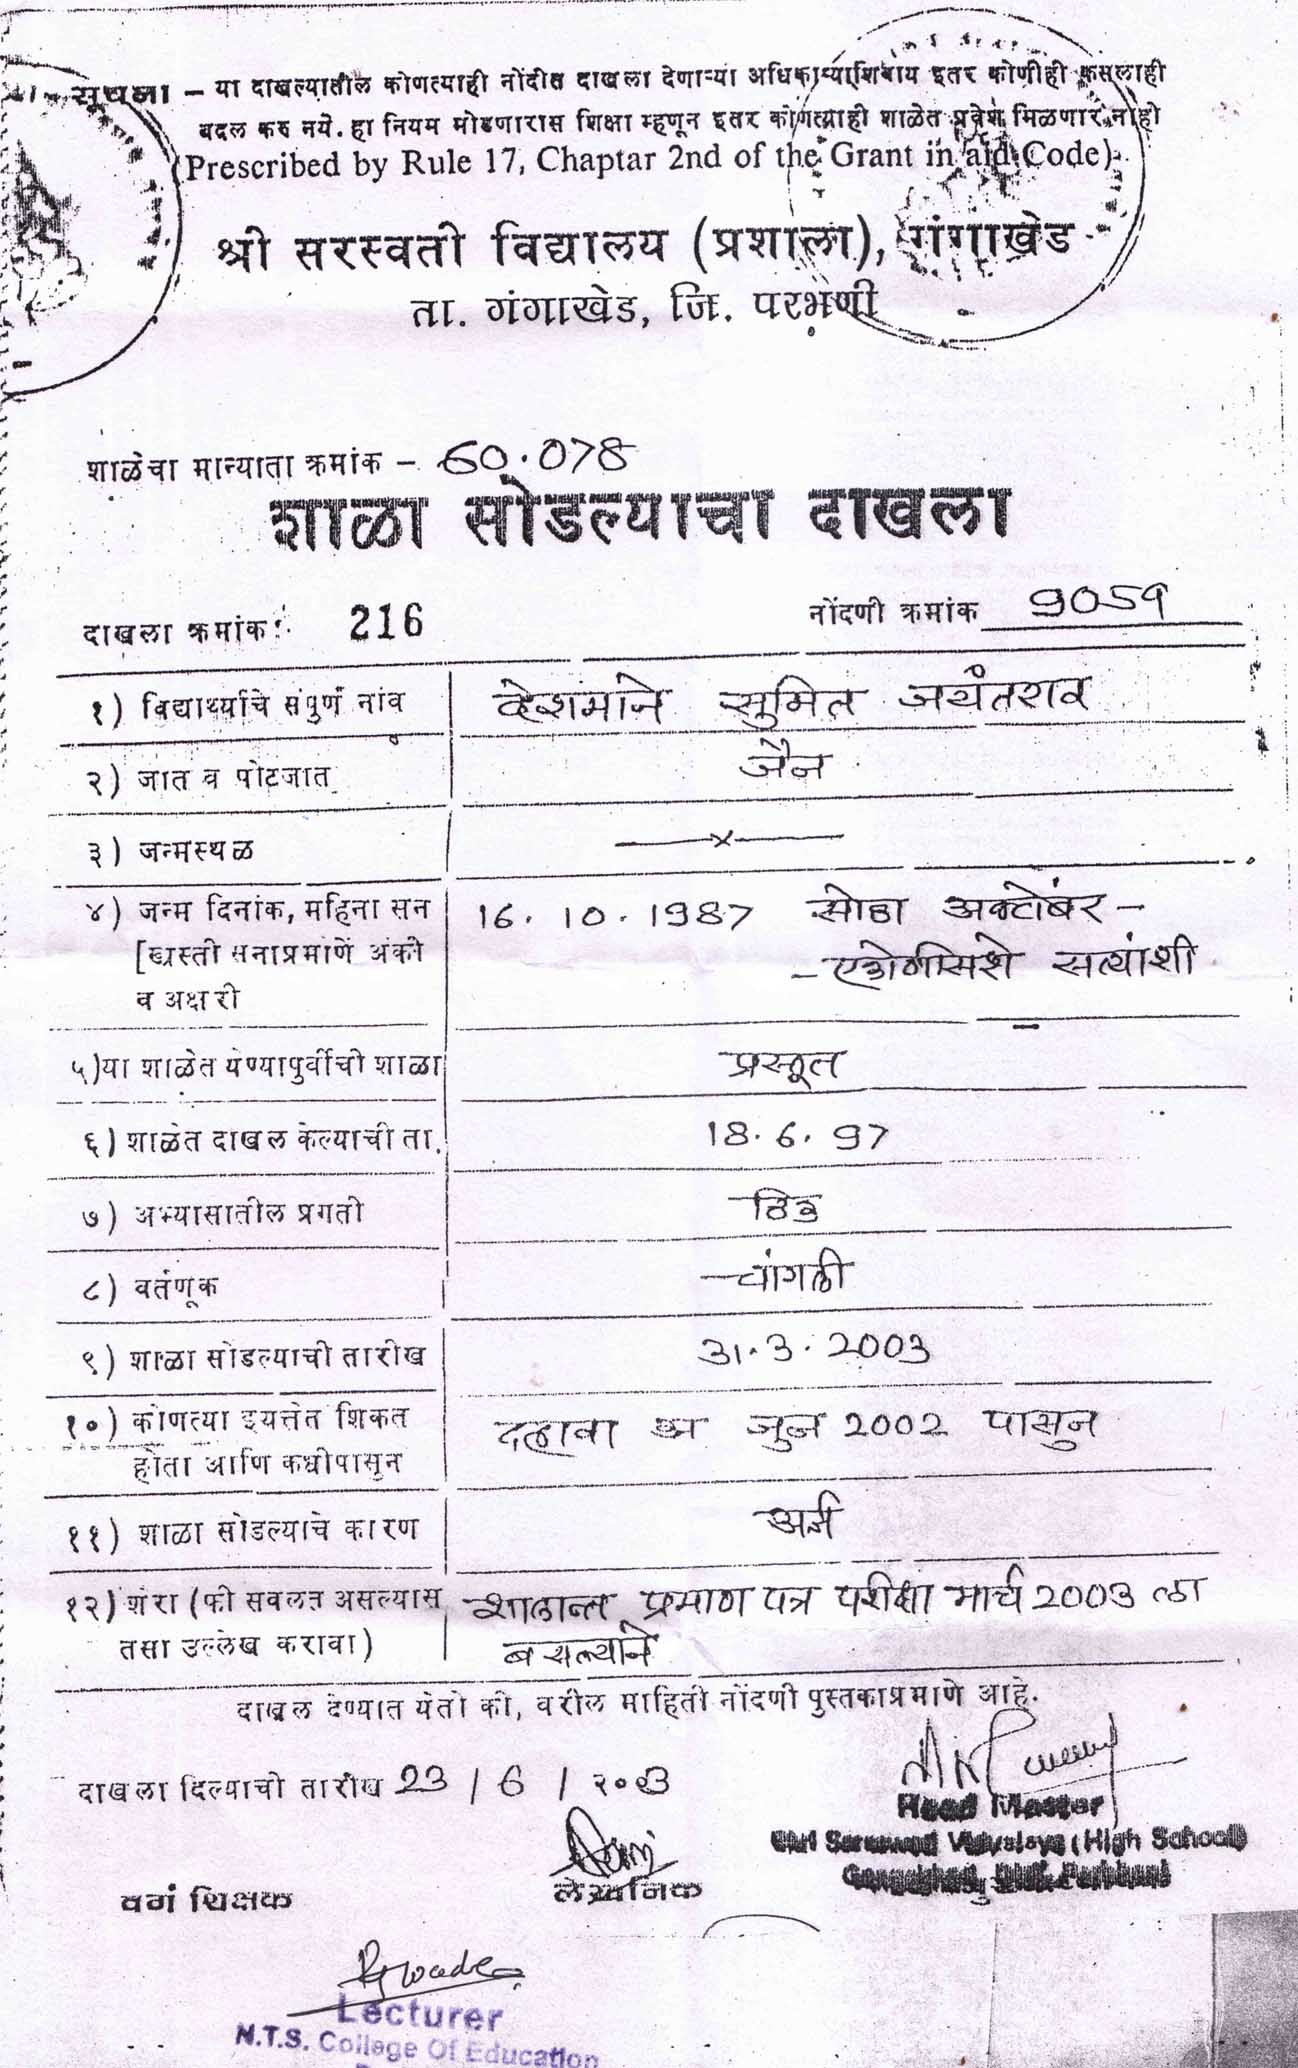 सूचना – या दाखल्यातील कोणत्याही नोंदीत दाखला देणाऱ्या अधिकाऱ्याशिवाय इतर कोणीही कसलाही
बदल करु नये. हा नियम मोडणारास शिक्षा म्हणून इतर कोणत्याही शाळेत प्रवेश मिळणार नाही
(Prescribed by Rule 17, Chaptar 2nd of the Grant in aid Code)
श्री सरस्वती विद्यालय (प्रशाला), गंगाखेड
ता. गंगाखेड, जि. परभणी
शाळेचा मान्यता क्रमांक – 60.078
शाळा सोडल्याचा दाखला
दाखला क्रमांक: 216 नोंदणी क्रमांक 9059
१) विद्यार्थ्याचे संपुर्ण नांव सुमित जयंतराव
२) जात व पोटजात जैन
३) जन्मस्थळ —x—
४) जन्म दिनांक, महिना सन 16.10.1987 सोळा अक्टोंबर –
[ख्रस्ती सनाप्रमाणें अंकी – एकोणीसशे सत्यांशी
व अक्षरी
५)या शाळेत येण्यापुर्वीची शाळा प्रस्तूत
६) शाळेत दाखल केल्याची ता. 18.6.97
७) अभ्यासातील प्रगती ठिक
८) वर्तणूक चांगली
९) शाळा सोडल्याची तारीख 31.3.2003
१०) कोणत्या इयत्तेत शिकत दहावा अ जुन 2002 पासुन
होता आणि कधीपासून
११) शाळा सोडल्याचे कारण अर्ज
१२) शेरा (फी सवलत असल्यास शालान्त प्रमाण पत्र परीक्षा मार्च 2003 ला
तसा उल्लेख करावा) बसल्याने
दाखल देण्यात येतो की, वरील माहिती नोंदणी पुस्तकाप्रमाणे आहे.
दाखला दिल्याची तारीख 23 / 6 / २००3
Head Master
Shri Saraswati Vidyalaya (High School)
Gangakhed, Dist. Parbhani
वर्ग शिक्षक लेखनिक
Lecturer
N.T.S. College Of Education